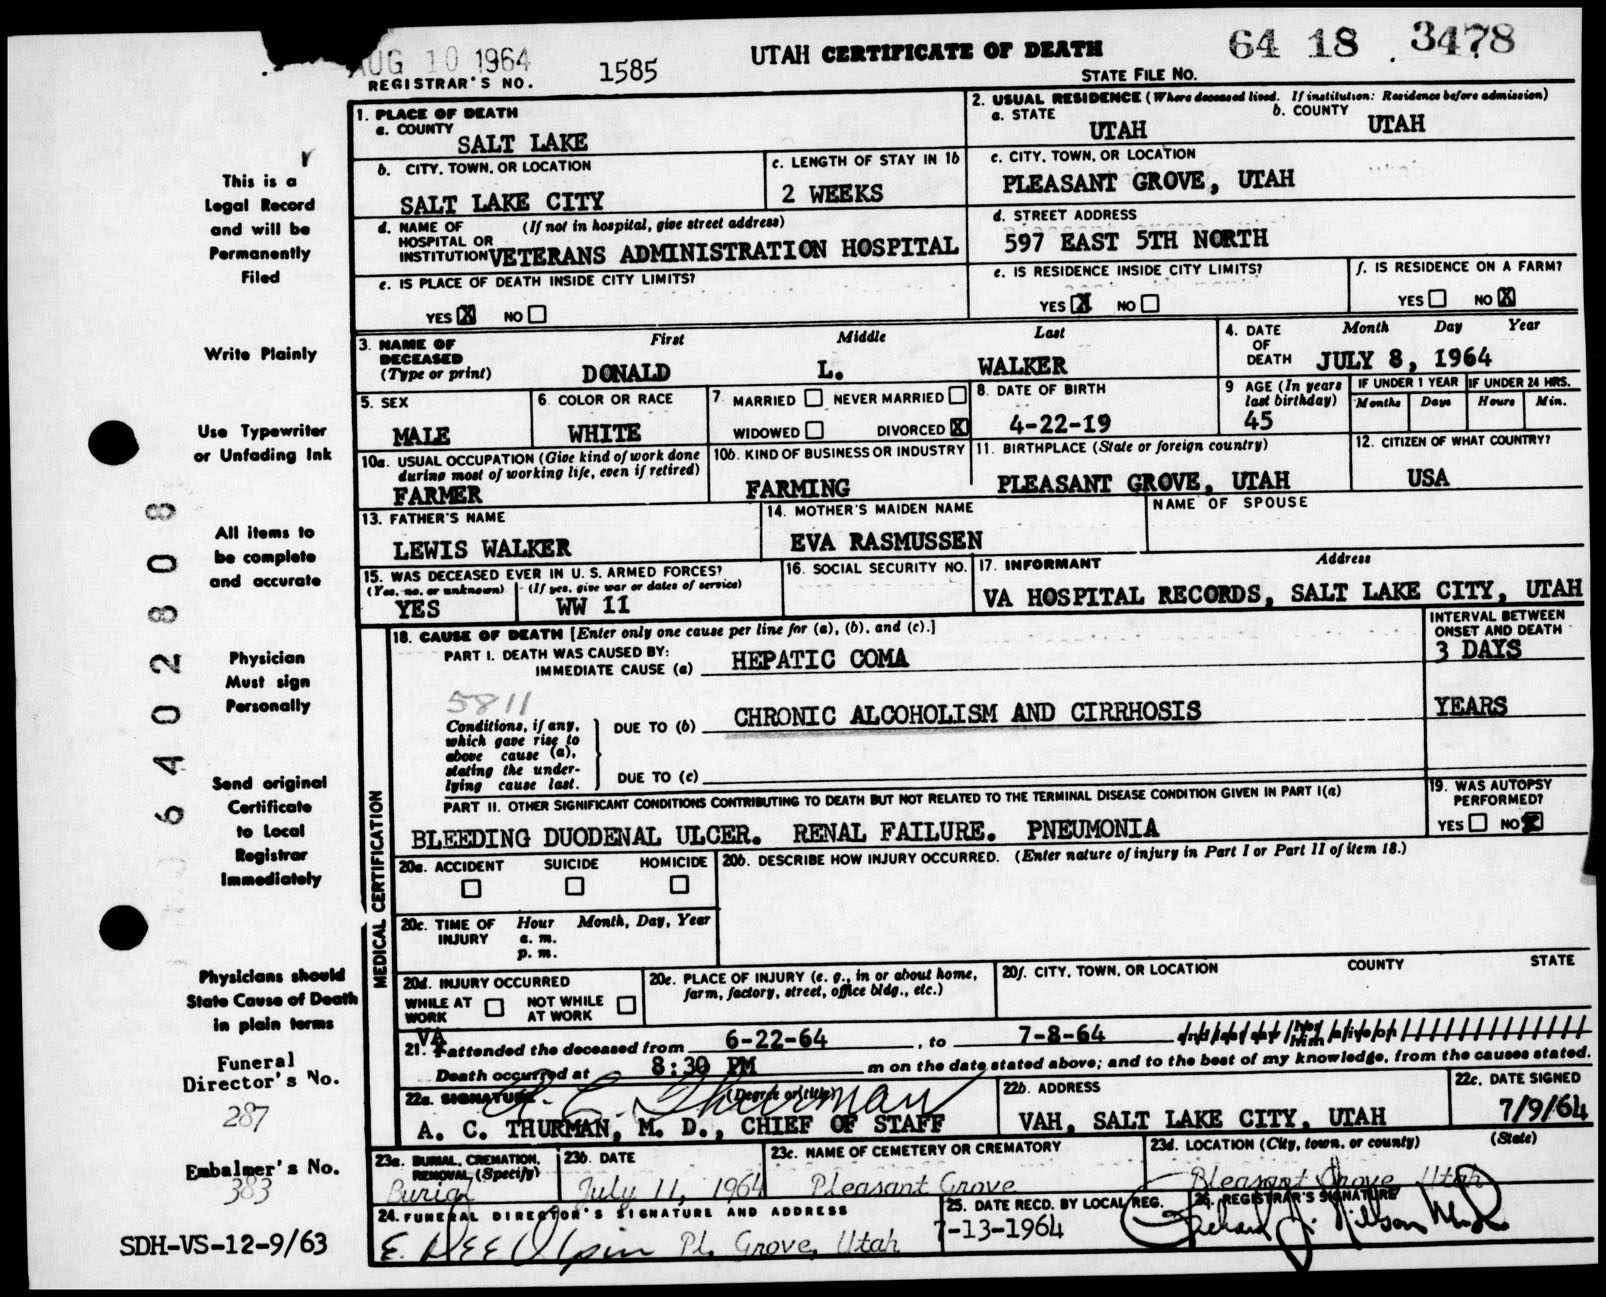 AUG 10 1964
UTAH CERTIFICATE OF DEATH
64 18 3478
REGISTRAR'S NO. 1585
STATE FILE No.
This is a
Legal Record
and will be
Permanently
Filed
Write Plainly
Use Typewriter
or Unfading Ink
All items to
be complete
and accurate
Physician
Must sign
Personally
Send original
Certificate
to Local
Registrar
Immediately
Physicians should
State Cause of Death
in plain terms
Funeral
Director's No.
287
Embalmer's No.
383
SDH-VS-12-9/63
6402808
1. PLACE OF DEATH
a. COUNTY
SALT LAKE
2. USUAL RESIDENCE (Where deceased lived. If institution: Residence before admission)
a. STATE
UTAH
b. COUNTY
UTAH
b. CITY, TOWN, OR LOCATION
SALT LAKE CITY
c. LENGTH OF STAY IN 1b
2 WEEKS
c. CITY, TOWN, OR LOCATION
PLEASANT GROVE, UTAH
d. NAME OF (If not in hospital, give street address)
HOSPITAL OR
INSTITUTION VETERANS ADMINISTRATION HOSPITAL
d. STREET ADDRESS
597 EAST 5TH NORTH
e. IS PLACE OF DEATH INSIDE CITY LIMITS?
YES X NO
e. IS RESIDENCE INSIDE CITY LIMITS?
YES X NO
f. IS RESIDENCE ON A FARM?
YES NO X
3. NAME OF
DECEASED
(Type or print)
First Middle Last
DONALD L. WALKER
4. DATE
OF
DEATH
Month Day Year
JULY 8, 1964
5. SEX
MALE
6. COLOR OR RACE
WHITE
7 MARRIED NEVER MARRIED
WIDOWED DIVORCED X
8. DATE OF BIRTH
4-22-19
9 AGE (In years
last birthday)
45
IF UNDER 1 YEAR
Months Days
IF UNDER 24 HRS.
Hours Min.
10a. USUAL OCCUPATION (Give kind of work done
during most of working life, even if retired)
FARMER
10b. KIND OF BUSINESS OR INDUSTRY
FARMING
11. BIRTHPLACE (State or foreign country)
PLEASANT GROVE, UTAH
12. CITIZEN OF WHAT COUNTRY?
USA
13. FATHER'S NAME
LEWIS WALKER
14. MOTHER'S MAIDEN NAME
EVA RASMUSSEN
NAME OF SPOUSE
15. WAS DECEASED EVER IN U. S. ARMED FORCES?
(Yes, no, or unknown) (If yes, give war or dates of service)
YES WW 11
16. SOCIAL SECURITY NO.
17. INFORMANT Address
VA HOSPITAL RECORDS, SALT LAKE CITY, UTAH
MEDICAL CERTIFICATION
18. CAUSE OF DEATH [Enter only one cause per line for (a), (b), and (c).]
INTERVAL BETWEEN
ONSET AND DEATH
PART I. DEATH WAS CAUSED BY:
IMMEDIATE CAUSE (a) HEPATIC COMA
3 DAYS
5811
Conditions, if any,
which gave rise to
above cause (a),
stating the under-
lying cause last.
DUE TO (b) CHRONIC ALCOHOLISM AND CIRRHOSIS
YEARS
DUE TO (c)
PART II. OTHER SIGNIFICANT CONDITIONS CONTRIBUTING TO DEATH BUT NOT RELATED TO THE TERMINAL DISEASE CONDITION GIVEN IN PART I(a)
BLEEDING DUODENAL ULCER. RENAL FAILURE. PNEUMONIA
19. WAS AUTOPSY
PERFORMED?
YES NO X
20a. ACCIDENT SUICIDE HOMICIDE
20b. DESCRIBE HOW INJURY OCCURRED. (Enter nature of injury in Part I or Part II of item 18.)
20c. TIME OF
INJURY
Hour Month, Day, Year
a. m.
p. m.
20d. INJURY OCCURRED
WHILE AT
WORK
NOT WHILE
AT WORK
20e. PLACE OF INJURY (e. g., in or about home,
farm, factory, street, office bldg., etc.)
20f. CITY, TOWN, OR LOCATION COUNTY STATE
VA
21. I attended the deceased from 6-22-64, to 7-8-64
Death occurred at 8:30 PM m on the date stated above; and to the best of my knowledge, from the causes stated.
22a. SIGNATURE (Degree or title)
A. C. Thurman
A. C. THURMAN, M. D., CHIEF OF STAFF
22b. ADDRESS
VAH, SALT LAKE CITY, UTAH
22c. DATE SIGNED
7/9/64
23a. BURIAL, CREMATION,
REMOVAL (Specify)
Burial
23b. DATE
July 11, 1964
23c. NAME OF CEMETERY OR CREMATORY
Pleasant Grove
23d. LOCATION (City, town, or county) (State)
Pleasant Grove Utah
24. FUNERAL DIRECTOR'S SIGNATURE AND ADDRESS
E. Dee Olpin Pl. Grove, Utah
25. DATE RECD. BY LOCAL REG.
7-13-1964
26. REGISTRAR'S SIGNATURE